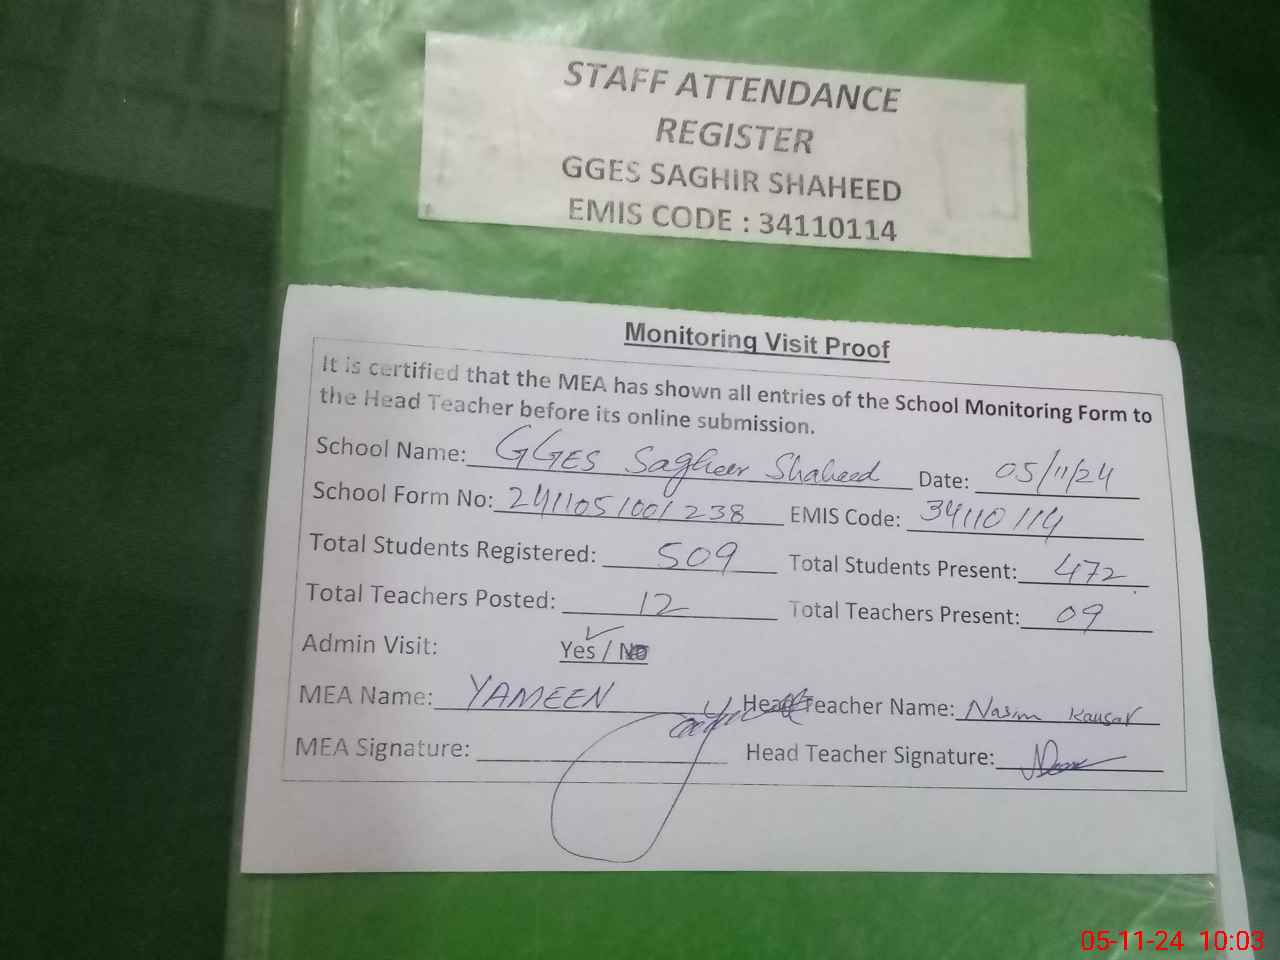 STAFF ATTENDANCE
REGISTER
GGES SAGHIR SHAHEED
EMIS CODE : 34110114
Monitoring Visit Proof
It is certified that the MEA has shown all entries of the School Monitoring Form to
the Head Teacher before its online submission.
School Name: GGES Sagheer Shaheed Date: 05/11/24
School Form No: 2411051001238 EMIS Code: 34110114
Total Students Registered: 509 Total Students Present: 472
Total Teachers Posted: 12 Total Teachers Present: 09
Admin Visit: Yes / No
MEA Name: YAMEEN Head Teacher Name: Nasim Kausar
MEA Signature: Head Teacher Signature:
05-11-24 10:03